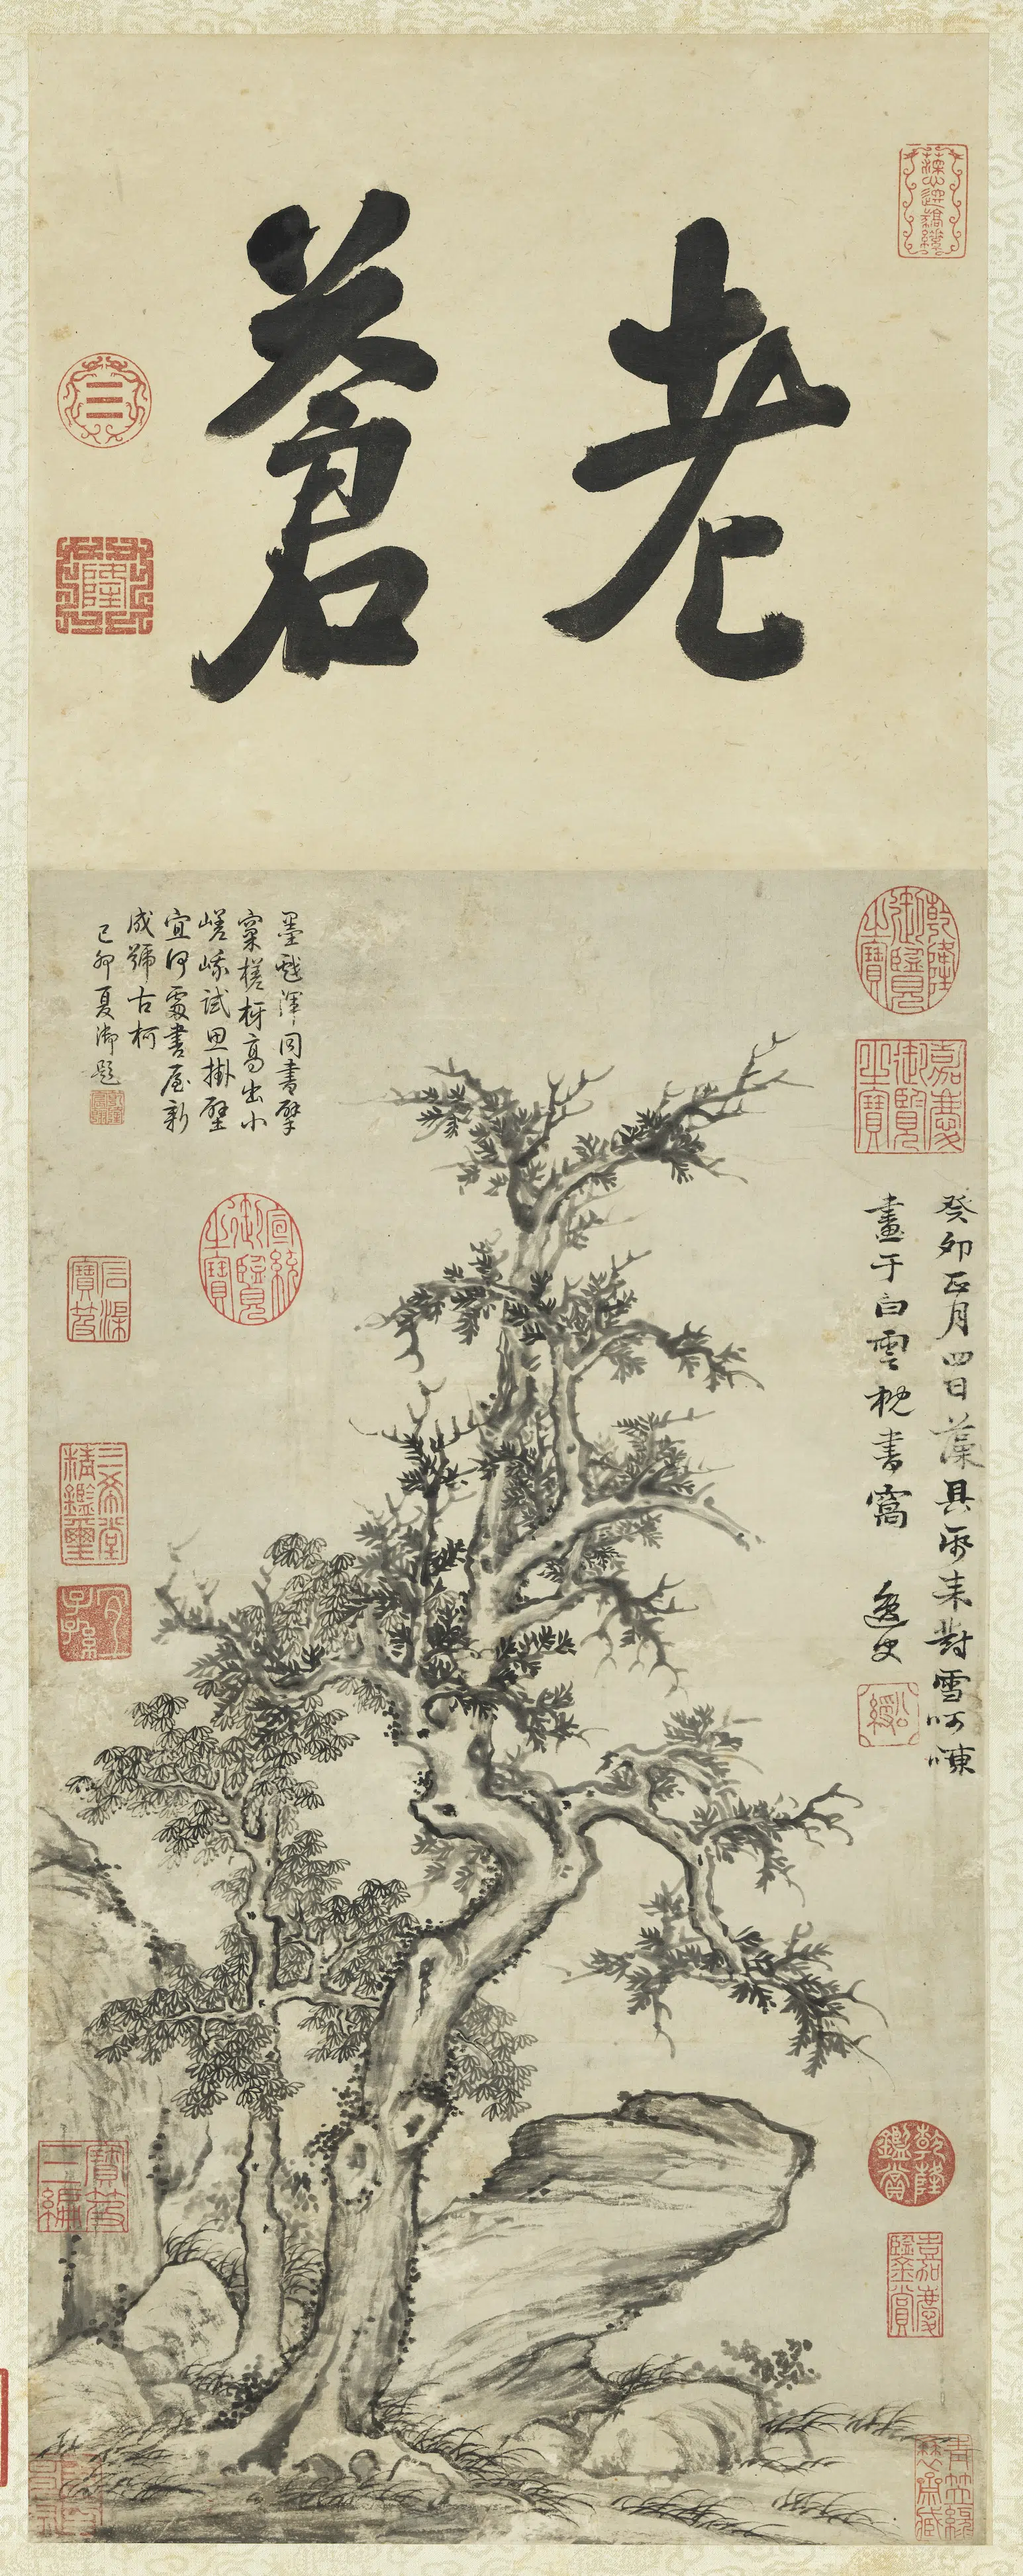 老蒼
癸卯正月四日藻具兩來對雪呵凍
畫于白雲枕書窩
逸史
墨戲渾同書擘
窠槎枒高出小
嵯峨試思掛壁
宜何處書屋新
成號古柯
己卯夏御題
乾隆御覽之寶
嘉慶御覽之寶
宣統御覽之寶
石渠寶笈
三希堂精鑑璽
宜子孫
乾隆鑑賞
嘉慶鑒賞
寶笈三編
乾隆